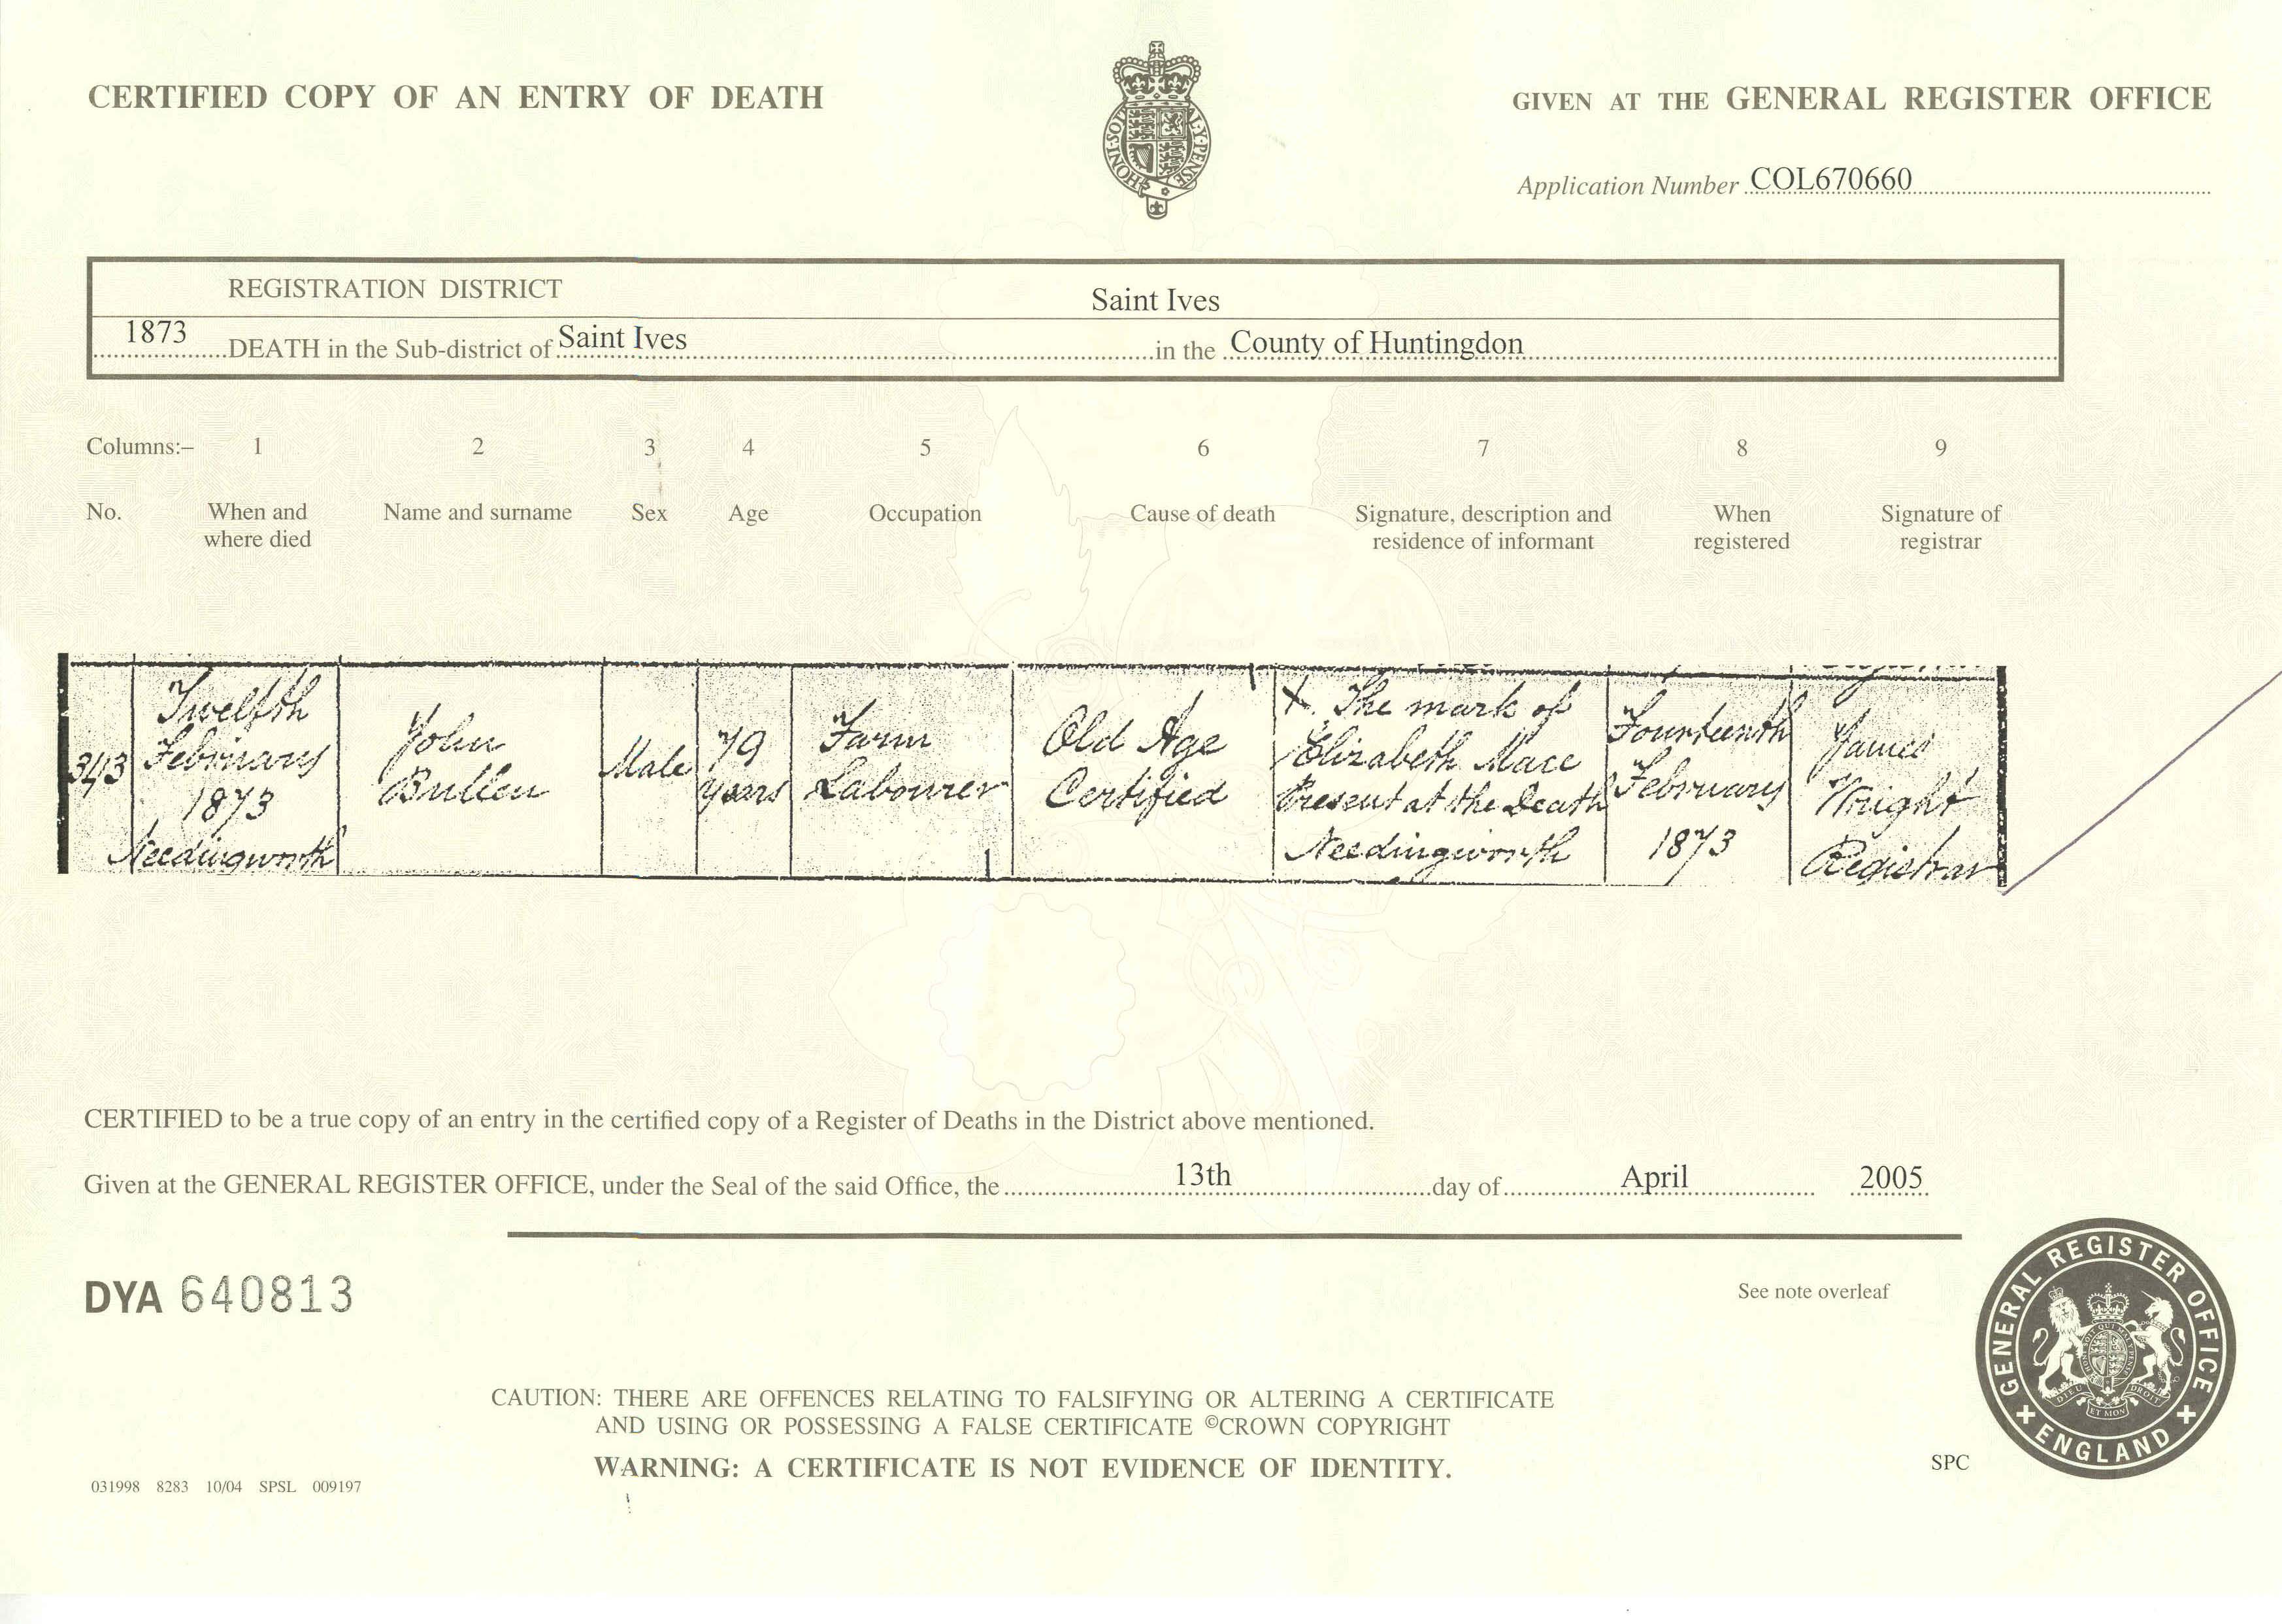 CERTIFIED COPY OF AN ENTRY OF DEATH
GIVEN AT THE GENERAL REGISTER OFFICE
Application Number COL670660
REGISTRATION DISTRICT Saint Ives
1873 DEATH in the Sub-district of Saint Ives in the County of Huntingdon
Columns:– 1 2 3 4 5 6 7 8 9
No.
When and
where died
Name and surname
Sex
Age
Occupation
Cause of death
Signature, description and
residence of informant
When
registered
Signature of
registrar
343
Twelfth
February
1873
Needingworth
John
Bullen
Male
79
years
Farm
Labourer
Old Age
Certified
X The mark of
Elizabeth Mace
Present at the Death
Needingworth
Fourteenth
February
1873
James
Wright
Registrar
CERTIFIED to be a true copy of an entry in the certified copy of a Register of Deaths in the District above mentioned.
Given at the GENERAL REGISTER OFFICE, under the Seal of the said Office, the 13th day of April 2005
DYA 640813
See note overleaf
GENERAL REGISTER OFFICE
ENGLAND
CAUTION: THERE ARE OFFENCES RELATING TO FALSIFYING OR ALTERING A CERTIFICATE
AND USING OR POSSESSING A FALSE CERTIFICATE ©CROWN COPYRIGHT
WARNING: A CERTIFICATE IS NOT EVIDENCE OF IDENTITY.
SPC
031998 8283 10/04 SPSL 009197